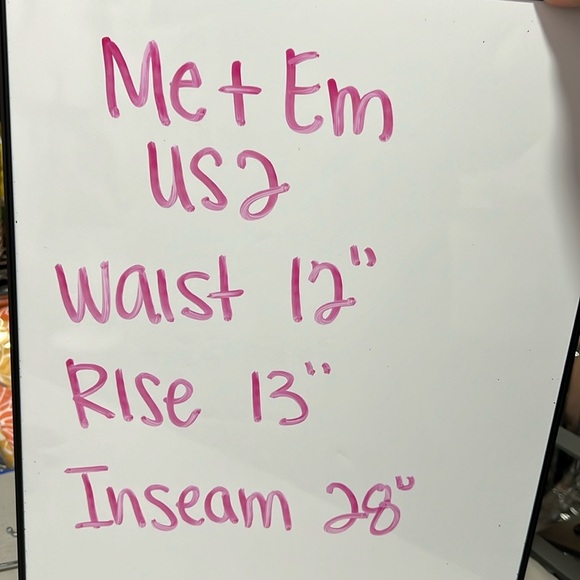 Me + Em
US 2
Waist 12"
Rise 13"
Inseam 28"